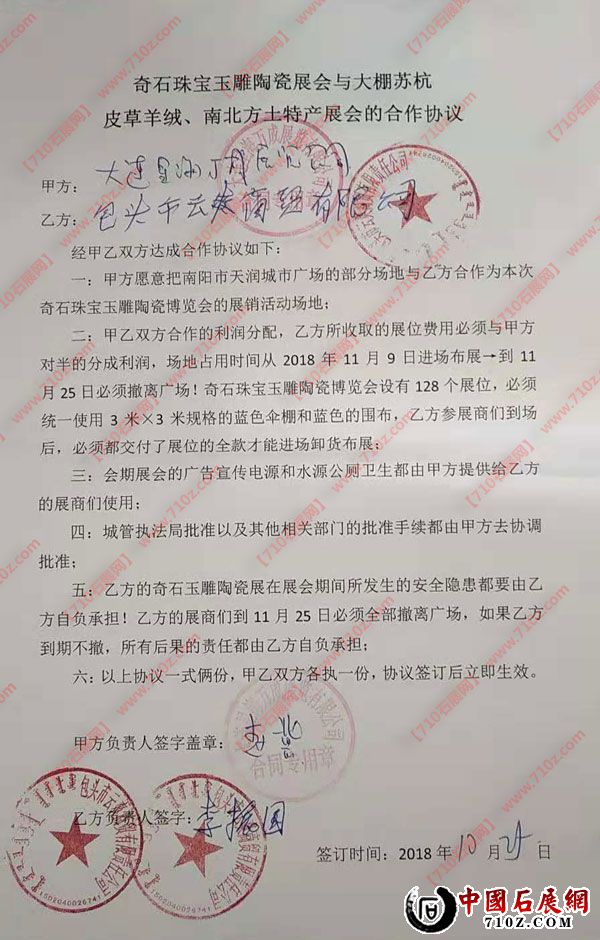 奇石珠宝玉雕陶瓷展会与大棚苏杭
皮草羊绒、南北方土特产展会的合作协议
甲方：大连
乙方：包头市云
经甲乙双方达成合作协议如下：
一：甲方愿意把南阳市天润城市广场的部分场地与乙方合作为本次
奇石珠宝玉雕陶瓷博览会的展销活动场地；
二：甲乙双方合作的利润分配，乙方所收取的展位费用必须与甲方
对半的分成利润，场地占用时间从 2018 年 11 月 9 日进场布展→到 11
月 25 日必须撤离广场！奇石珠宝玉雕陶瓷博览会设有 128 个展位，必须
统一使用 3 米×3 米规格的蓝色伞棚和蓝色的围布，乙方参展商们到场
后，必须都交付了展位的全款才能进场卸货布展；
三：会期展会的广告宣传电源和水源公厕卫生都由甲方提供给乙方
的展商们使用；
四：城管执法局批准以及其他相关部门的批准手续都由甲方去协调
批准；
五：乙方的奇石玉雕陶瓷展在展会期间所发生的安全隐患都要由乙
方自负承担！乙方的展商们到 11 月 25 日必须全部撤离广场，如果乙方
到期不撤，所有后果的责任都由乙方自负承担；
六：以上协议一式俩份，甲乙双方各执一份，协议签订后立即生效。
甲方负责人签字盖章：
合同专用章
乙方负责人签字：李振国
签订时间：2018 年 10 月 25 日
1502040026741
1502040026741
【710石展网】www.710z.com
中國石展網
710Z.COM